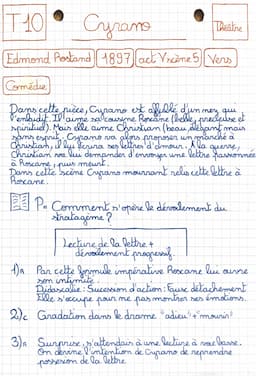 T10
Cyrano
Théâtre
Edmond Rostand
1897
act V scène 5
Vers
Comédie
Dans cette pièce, Cyrano est affublé d'un nez qui
l'enlaidit. Il aime sa cousine Roxane (belle, précieuse et
spirituel). Mais elle aime Christian (beau, élégant mais
sans esprit. Cyrano va alors proposer un marché à
Christian, il lui écrira ses lettres d'amour. À la guerre,
Christian va lui demander d'envoyer une lettre passionnée
à Roxane, puis meurt.
Dans cette scène Cyrano mourrant relis cette lettre à
Roxane.
P= Comment s'opère le dévoilement du
stratagème ?
Lecture de la lettre +
dévoilement progressif.
1)A Par cette formule impérative Roxane lui ouvre
son intimité.
Didascalie : Sucession d'action : Faire détachement
Elle s'occupe pour ne pas montrer ses émotions.
2)C Gradation dans le drame "adieu" + "mourir"
3)A Surprise, s'attendait à une lecture à voix basse.
On devine l'intention de Cyrano de reprendre
possession de la lettre